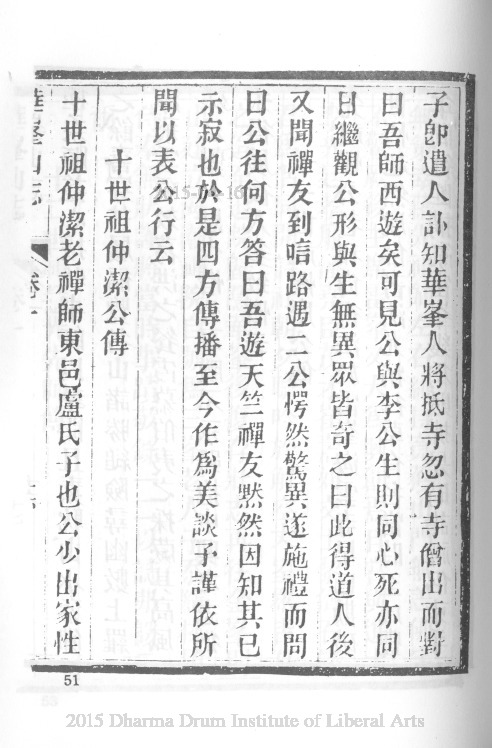 子卽遣人訃知華峯人將抵寺忽有寺僧出而對
曰吾師西遊矣可見公與李公生則同心死亦同
日繼觀公形與生無異眾皆奇之曰此得道人後
又聞禪友到唁路遇二公愕然驚異遂施禮而問
曰公往何方答曰吾遊天竺禪友默然因知其已
示寂也於是四方傳播至今作爲美談予謹依所
聞以表公行云
十世祖仲潔公傳
十世祖仲潔老禪師東邑盧氏子也公少出家性
華峯山志
卷十
51
2015 Dharma Drum Institute of Liberal Arts